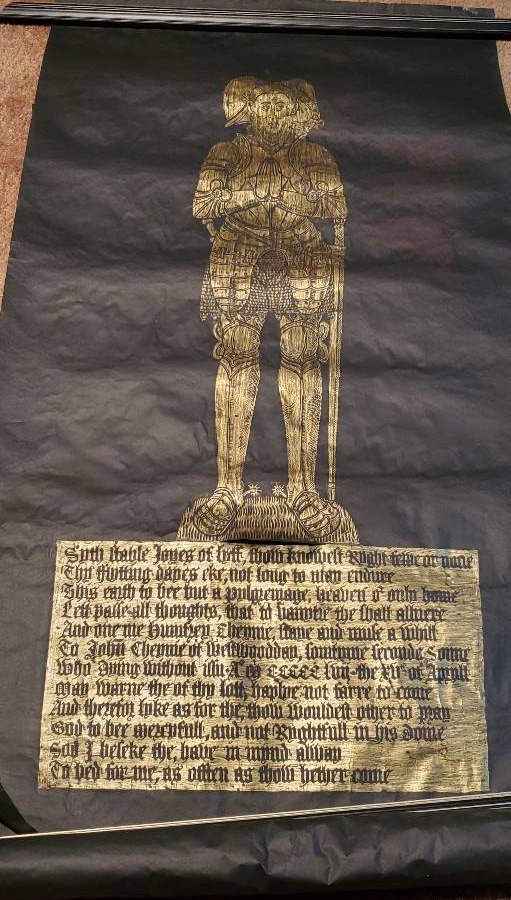 Syth stable Joyes of lyff, thow knowest Ryght fewe or none
Thy flytting dayes eke, not long to man endure
This earth to bee but a pylgremage, heaven yͤ only home
Lett passe all thoughts, that to vanytie the shall allure
And one me Humfrey Cheynie, stane and muse a whyll
To John Cheynie of seconde Sonne
Who dying without issu Aͦ Mͦ CCCCC lvii the XVᵗʰ of Apryll
may warne the of thy lott, haplye not farre to come
And therefor lyke as for the, thow wouldest other to pray
God to bee mercyfull, and not Ryghtfull in his dome
Soo I beseke the, have in mynd alway
To for me, as often as thow hether come